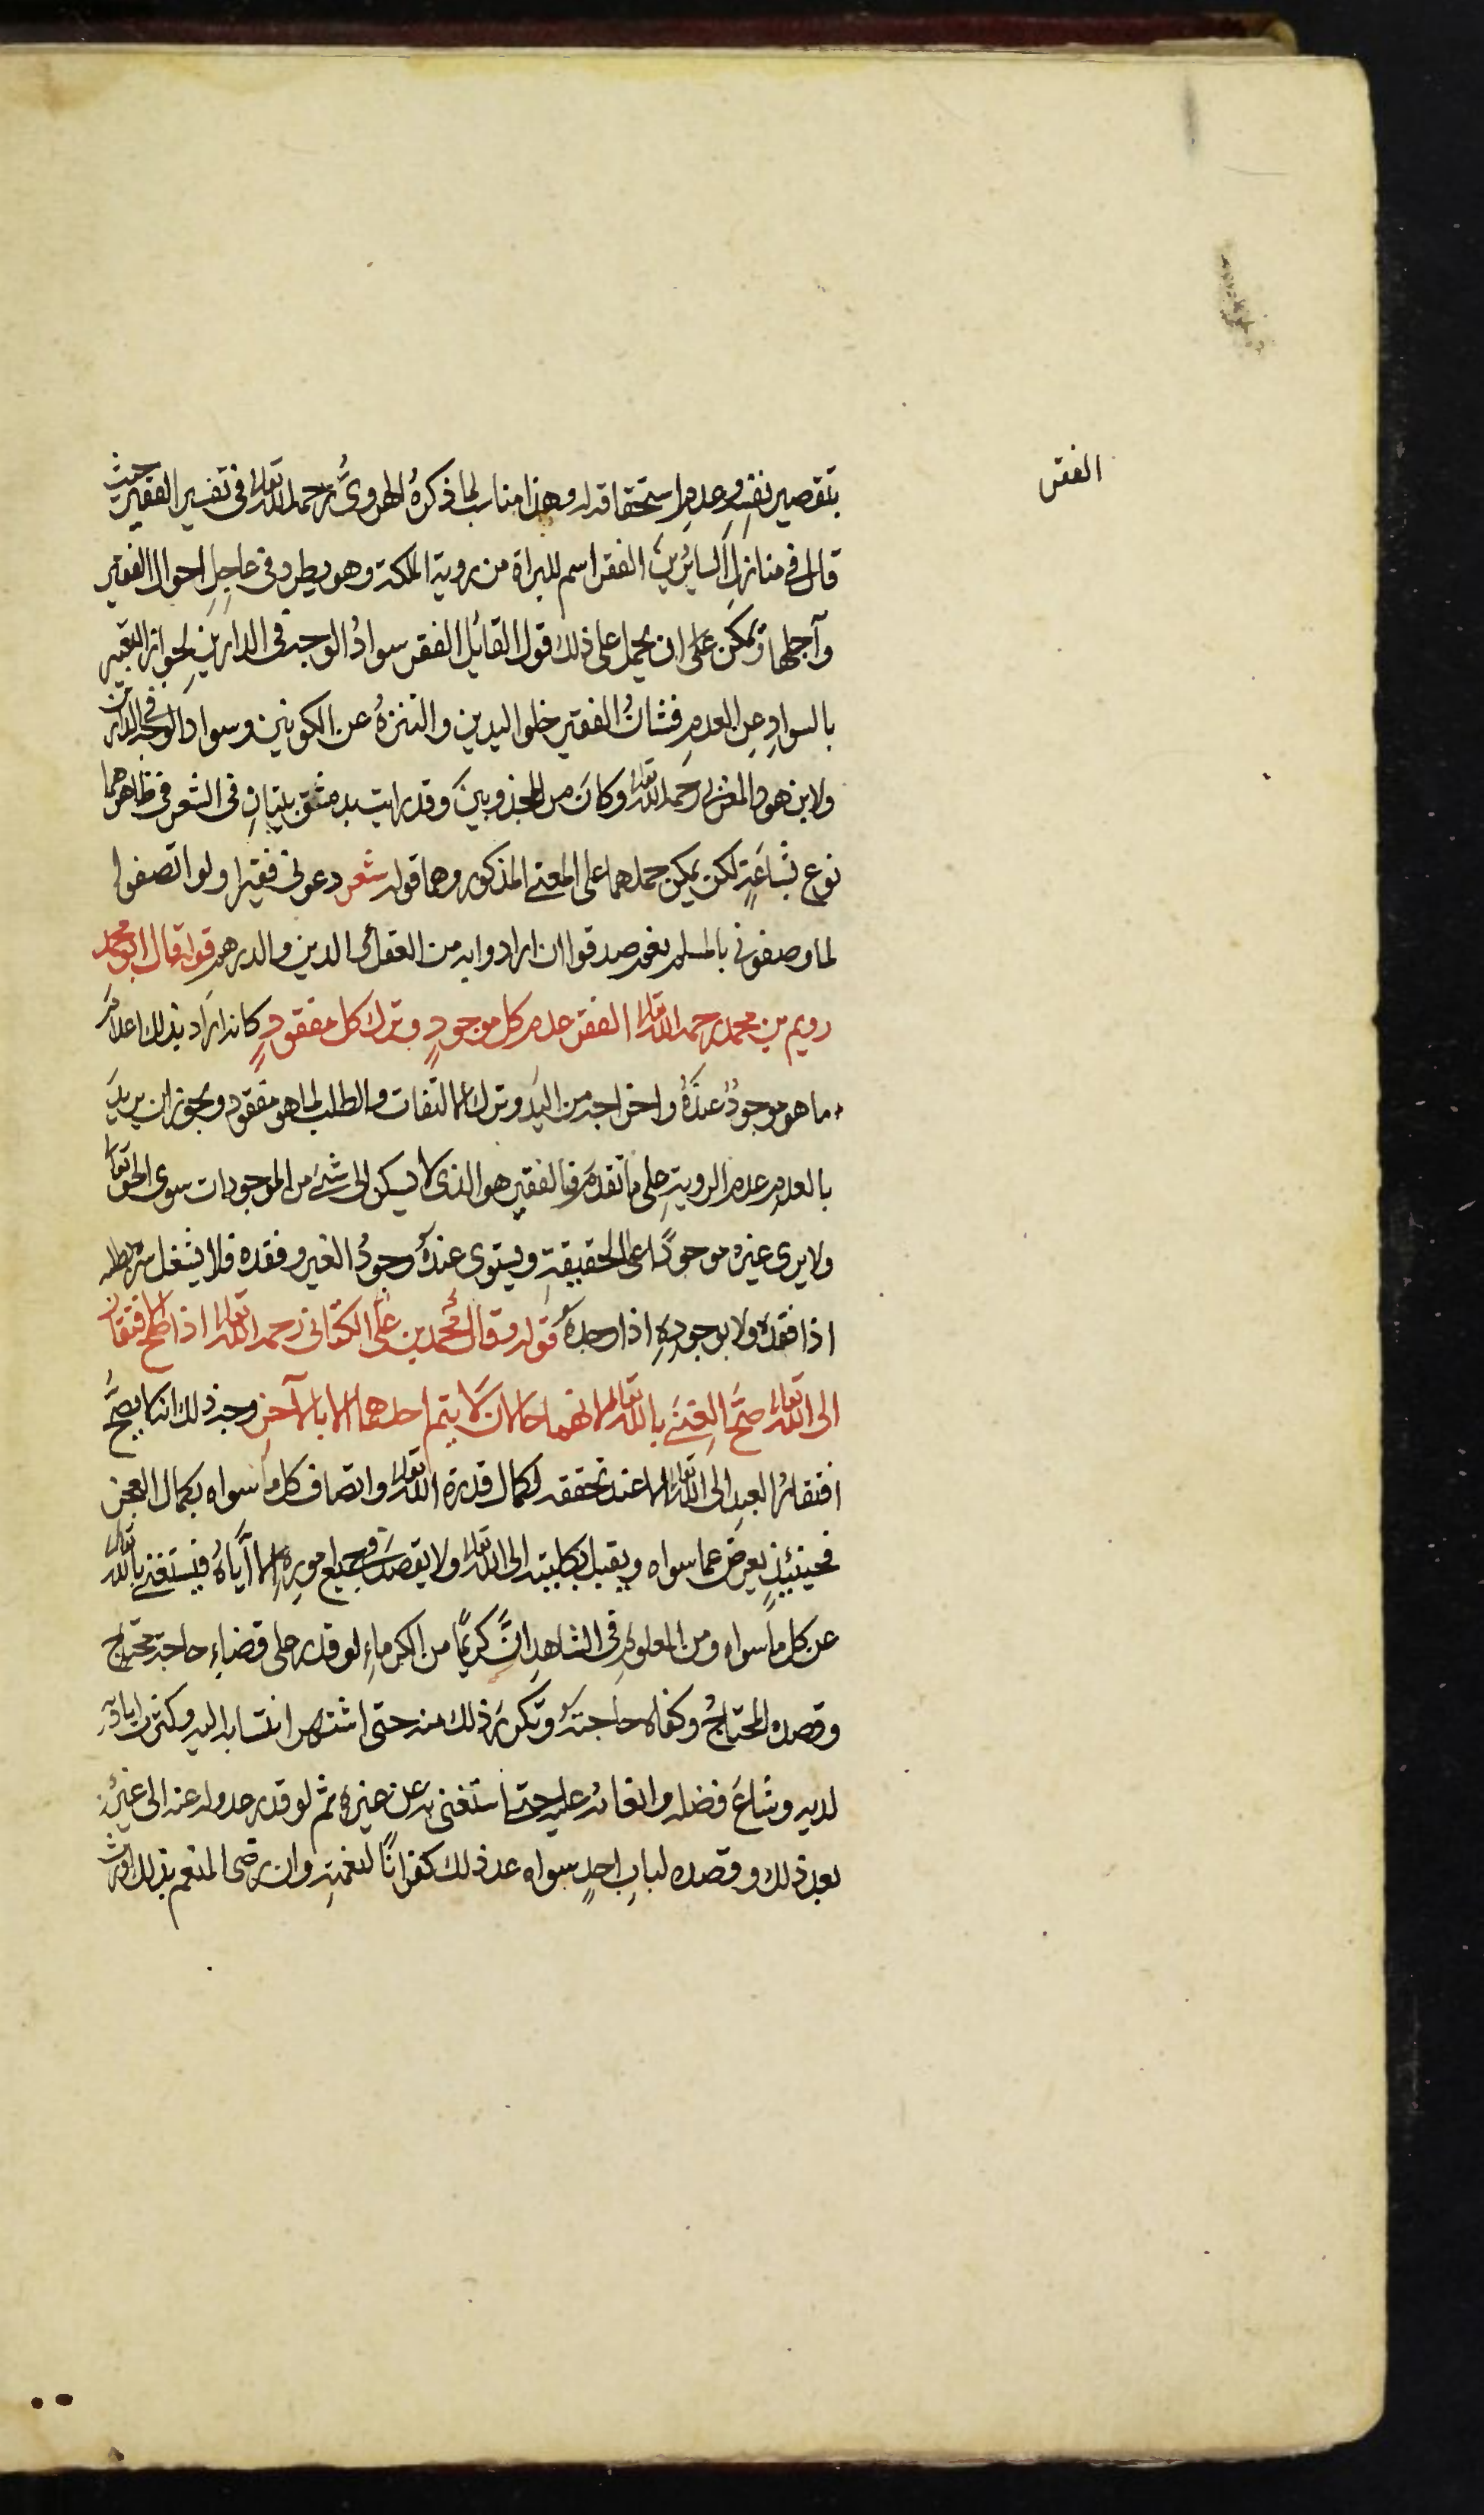 الفقر
بتقصير نفسِهِ وعدمِ استحقاقه وهذا مناسب لما ذكرهُ الهرويُّ رحمه الله تعالى في تفسير الفقير حيث
قال في منازلِ السايرينَ الفقر اسم للبراة من روية الملكة وهو يطرد في عاجِلِ احوال الفقير
وآجلها ويمكن على ان يحمل على ذلك قول القايل الفقر سوادُ الوجه في الدارينِ لجواز التعبير
بالسوادِ عن العدمِ فشانُ الفقير خلو اليدين والتنزهُ عن الكونين وسواد الوجه في الدارين
ولابن هود المغربي رحمه الله تعالى وكانَ من المجذوبينَ وقد رايت بدمشق بيتانِ في الشعر في ظاهرهما
نوع بشاعَةٍ لكن يمكن حملهما على المعنى المذكور وهما قوله شعر دعوني فقيرا ولو اتصفوا
لما وصفوني بالمسلم نعم صدقوا ان ارادوا به من العقل والدين والدرهم قوله قال ابو محمد
رويم بن محمد رحمه الله تعالى الفقر عدم كل موجودٍ وترك كل مفقودٍ كانه ارَاد بذلك اعدام
ما هو موجودٌ عندَهُ واخراجه من اليَد وترك الالتفات والطلب لما هو مفقود ويجوز ان يريدَ
بالعدمِ عدم الرويةِ على ما تقدم فالفقير هو الذي لا يسكن الى شيء من الموجودات سوى الحق تعالى
ولا يرى غيره موجودًا على الحقيقةِ ويستوي عندَهُ وجودُ الغير وفقده فلا يشغل سره بطلبه
اذا فقدَهُ ولا بوجودِهِ اذا وجدَهُ قوله وقال محمد بن علي الكتاني رحمه الله تعالى اذا صح الافتقار
الى الله تعالى صحَّ الغِنَى بالله تعالى لانهما حالان لا يتم احدهما الا بالآخرِ وجه ذلك انه لا يصحُّ
افتقارُ العبدِ الى الله تعالى الا عند تحققه لكمال قدرة الله تعالى واتصاف كل ما سواه بكمال العجز
فحينئيذٍ يعرض عما سواه ويقبل بكليته الى الله تعالى ولا يقصد في جميع امورِهِ الا ايَّاهُ فيستغني بالله تعالى
عن كل ما سواه ومن المعلومِ في الشاهدِ انَّ كريمًا من الكرماءِ لو قدر على قضاءِ حاجة محتاج
وقصده المحتاجُ وكفاه حاجتَهُ وتكررَ ذلك منه حتى اشتهر انتسابه اليه وكثرت اياديه
لديه وشاعَ فضله وانعامُه عليه حتى استغنى به عن غيرهِ ثم لو قدر عدوله عنه الى غيره
بعد ذلك وقصده لبابِ احدٍ سواه عد ذلك كفرانًا لنعمتِهِ وان رضى المنعم بذلك